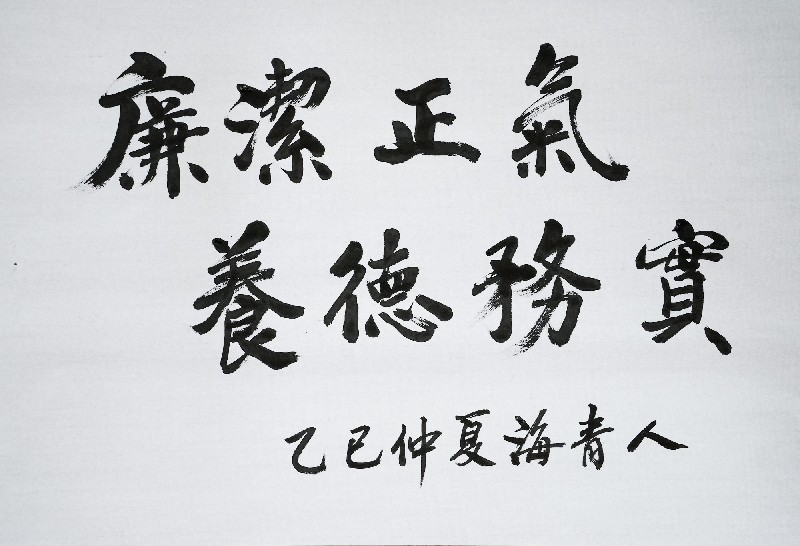 廉潔正氣
養德務實
乙巳仲夏海青人